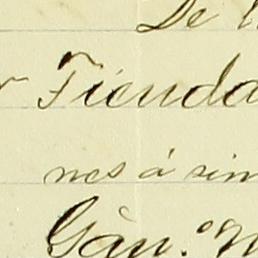 De l
Tienda
nes á sin
Gán.º N